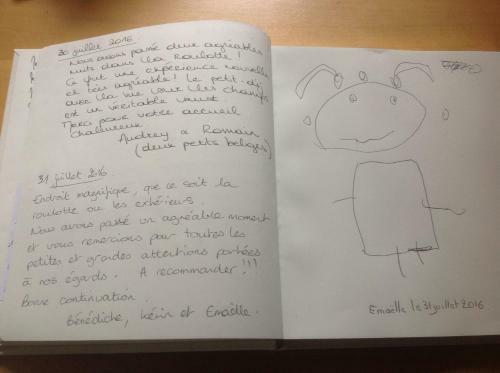 30 juillet 2016
Nous avons passé deux agréables
nuits dans la roulotte!
Ce fut une expérience nouvelle
et très agréable! Le petit-déj
avec la vue sur les champs
est un véritable must.
Merci pour votre accueil
chaleureux.
Audrey & Romain
(deux petits belges)
31 juillet 2016
Endroit magnifique, que ce soit la
roulotte ou les extérieurs.
Nous avons passé un agréable moment
et vous remercions pour toutes les
petites et grandes attentions portées
à nos égards. A recommander!!!
Bonne continuation.
Bénédicte, Kévin et Emaëlle.
Emaëlle le 31 juillet 2016